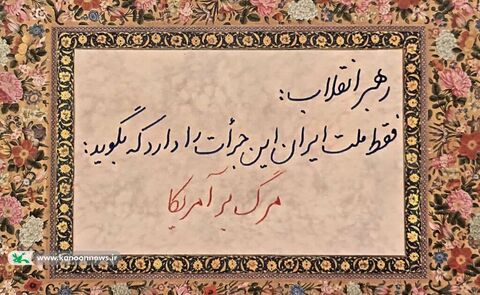 رهبر انقلاب:
فقط ملت ایران این جرأت را دارد که بگوید:
مرگ بر آمریکا
www.kanoonnews.ir